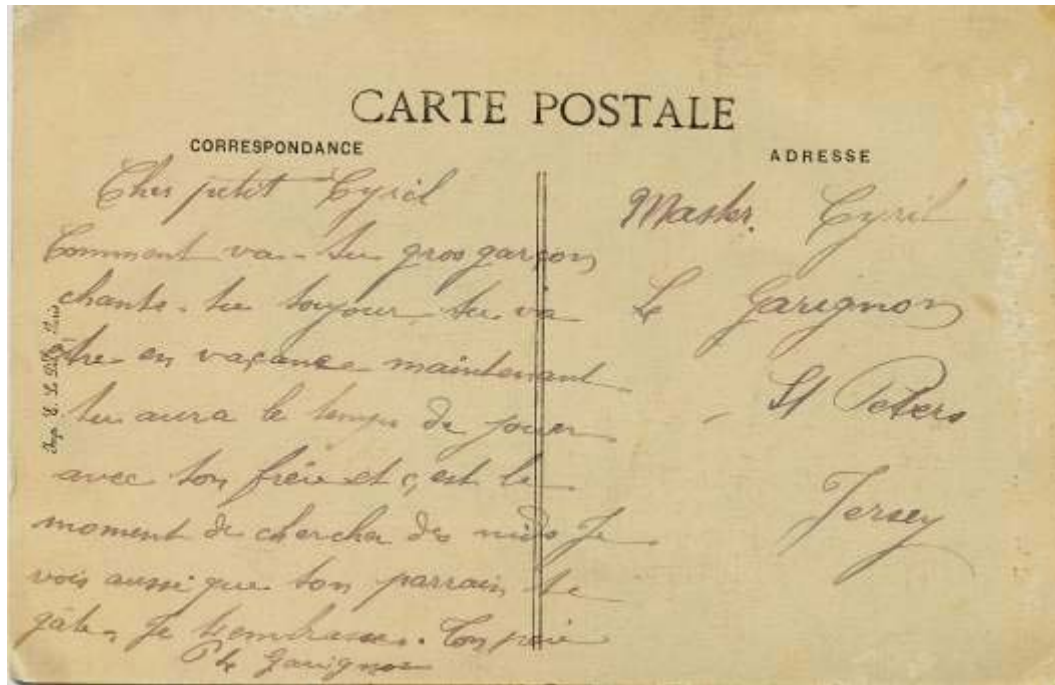 CARTE POSTALE
CORRESPONDANCE
ADRESSE
Cher petit Cyril
Comment va-tu gros garçon
chante-tu toujour tu va
être en vacance maintenant
tu aura le temps de jouer
avec ton frère et c'est le
moment de chercher des nids Je
vois aussi que ton parrain te
gâte, Je t'embrasse. Ton père
P Le Garignon
Master. Cyril
Le Garignon
St Peters
Jersey
Imp. E. Le Paris